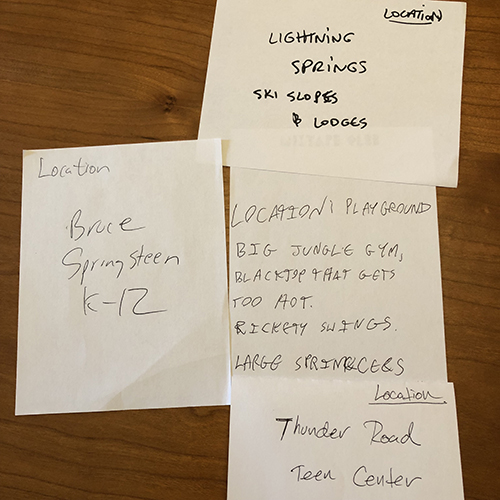 LOCATION
LIGHTNING
SPRINGS
SKI SLOPES
& LODGES
Location
Bruce
Springsteen
K-12
LOCATION: PLAYGROUND
BIG JUNGLE GYM,
BLACKTOP THAT GETS
TOO HOT.
RICKETY SWINGS.
LARGE SPRINKLERS
Location
Thunder Road
Teen Center